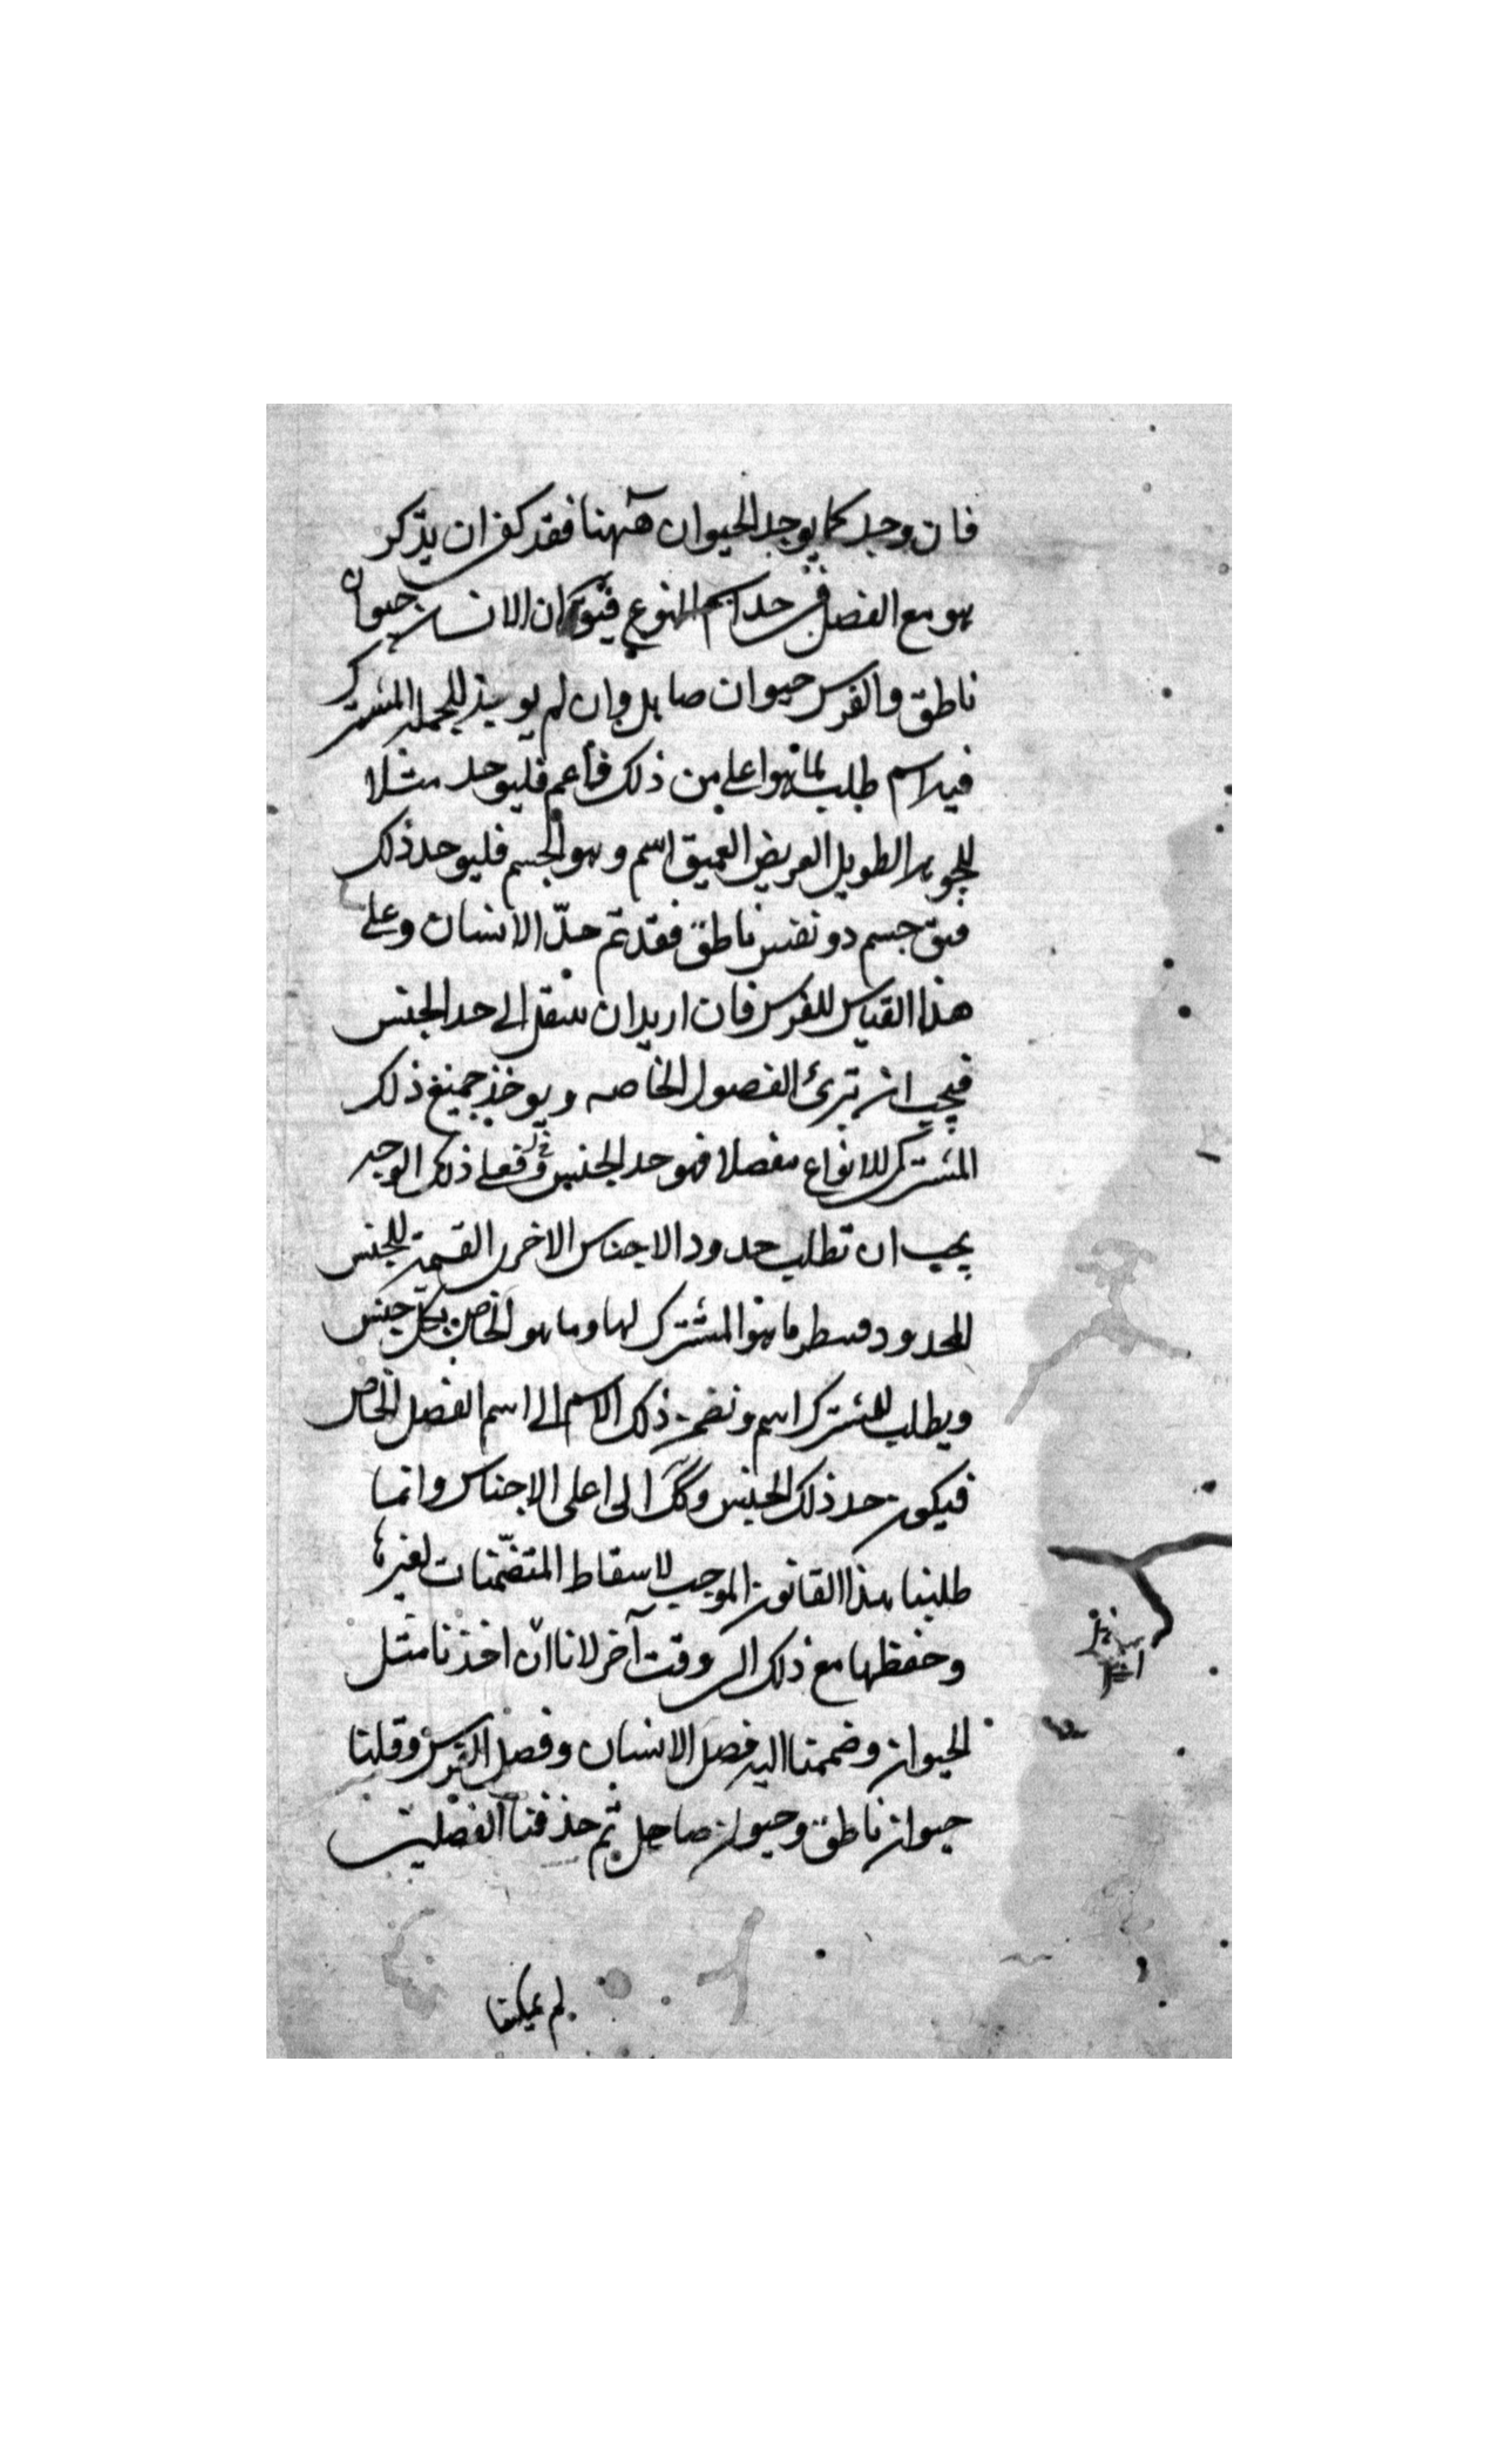 فان وجد كما يوجد الحيوان ههنا فقد كفى ان يذكر
هو مع الفصل في حد اسم النوع فيقال ان الانسان حيوان
ناطق والفرس حيوان صاهل وان لم يوجد للجملة المشترك
فيه اسم طلب لما هو اعلى من ذلك فأعم فليوخد مثلا
للجوهر الطويل العريض العميق اسم وهو الجسم فليوخد ذلك
فيق جسم ذو نفس ناطق فقد تم حدّ الانسان وعلى
هذا القياس للفرس فان اريد ان ينتقل الى حد الجنس
فيجب ان ترى الفصول الخاصه ويوخذ جميع ذلك
المشترك للانواع مفصلا فهو حد الجنس فعلى ذلك الوجه
يجب ان تطلب حدود الاجناس الاخرى القسمة للجنس
المحدود فينظر ما هو المشترك لها وما هو الخاص بكل جنس
ويطلب للمشترك اسم ونضم ذلك الاسم الى اسم الفصل الخاص
فيكون حد ذلك الجنس وكك الى اعلى الاجناس وانما
طلبنا هذا القانون الموجب لاسقاط المتضمنات لغيرها
وحفظها مع ذلك الى وقت آخر لانا ان اخذنا مثل
الحيوان وضممنا اليه فصل الانسان وفصل الفرس وقلنا
حيوان ناطق وحيوان صاهل ثم حذفنا الفصلين
لم يمكننا